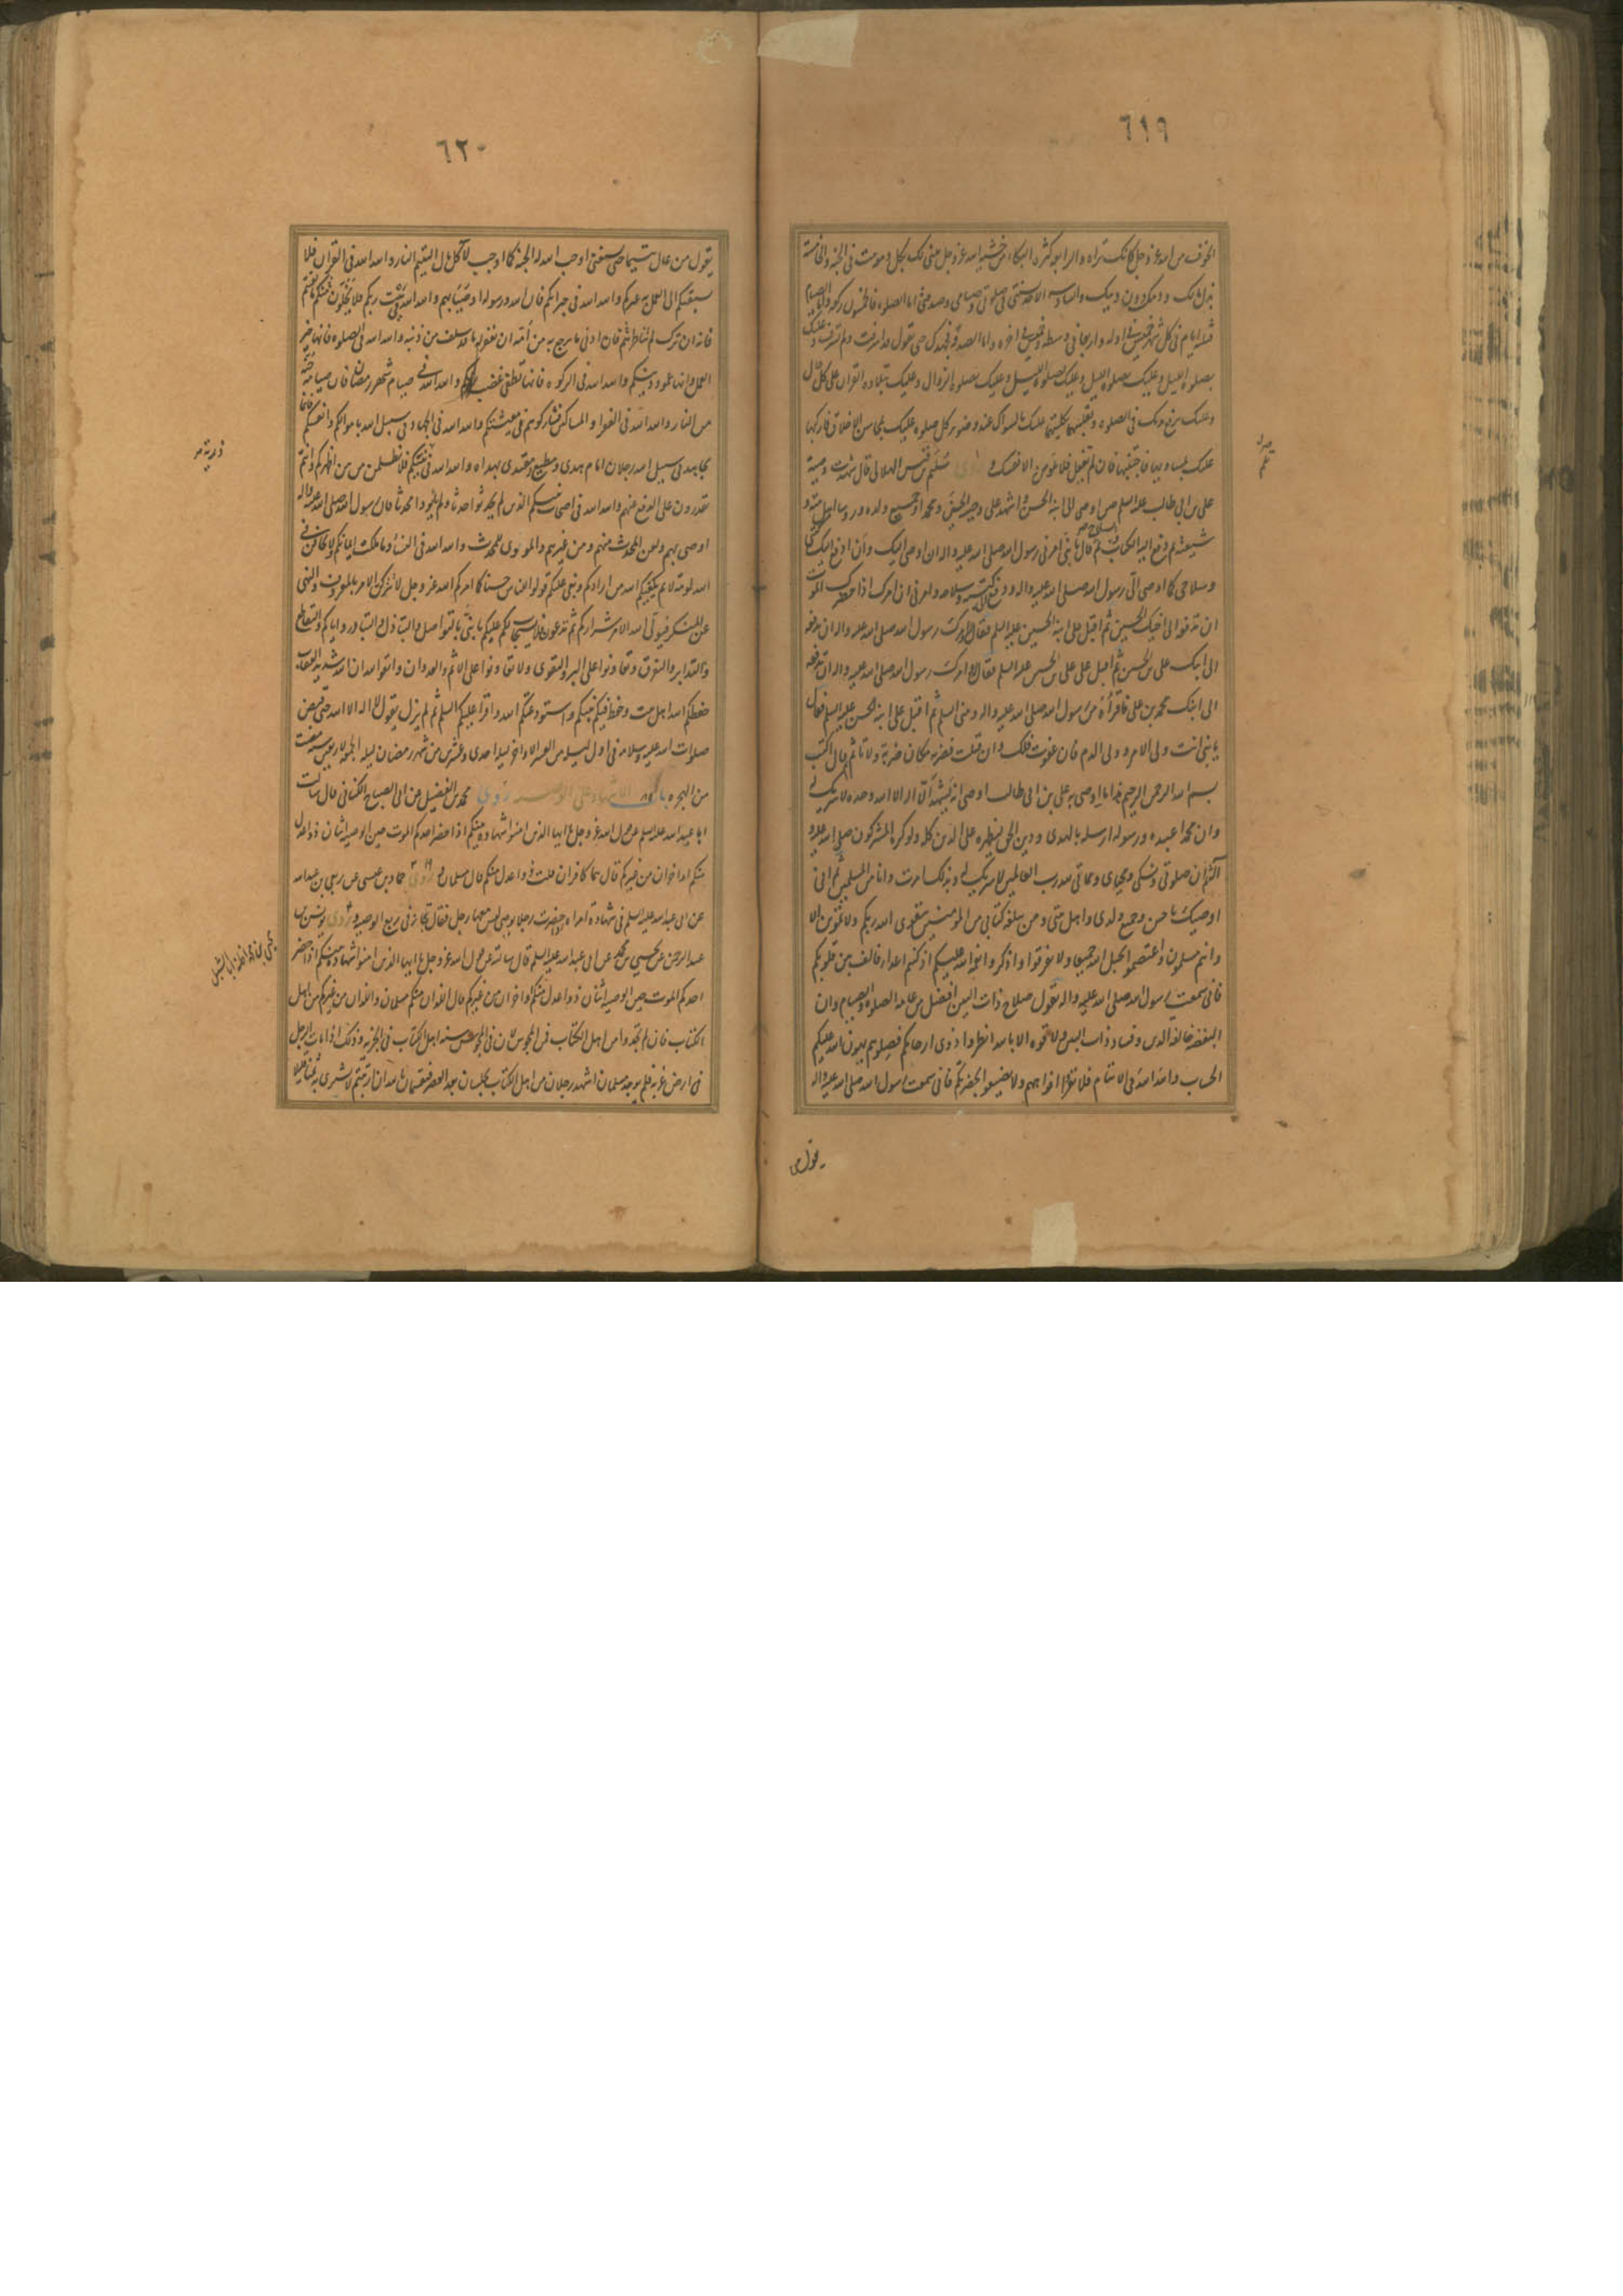 ٦١٩
الخوف من الله عز وجل كانك تراه والرابعه كثره البكاء من خشيه الله عز وجل يبنى لك بكل دمعه بيت فى الجنه والخامسه
بذلك مالك ودمك دون دينك والسادسه الاخذ بسنتى فى صلوتى وصيامى وصدقتى اما الصلوه فالخمسون ركعه واما الصيام
فثلثه ايام فى كل شهر خميس فى اوله واربعا فى وسطه وخميس فى اخره واما الصدقه فجهدك حتى تقول قد اسرفت ولم تسرف وعليك
بصلوه الليل وعليك بصلوه الليل وعليك بصلوه الليل وعليك بصلوه الزوال وعليك بتلاوه القران على كل حال
وعليك برفع يديك فى الصلوه وتقليبهما بكلتيهما عليك بالسواك عند وضوء كل صلوه عليك بمحاسن الاخلاق فاركبها
عليك بمساويها فاجتنبها فان لم تفعل فلا تلومن الا نفسك و روى سليم بن قيس الهلالى قال شهدت وصيه
على بن ابى طالب عليه السلم حين اوصى الى ابنه الحسن واشهد على وصيه الحسين ومحمدا وجميع ولده وروساء اهل بيته و
شيعته ثم دفع اليه الكتاب والسلاح ثم قال يا بنى امرنى رسول الله صلى الله عليه واله ان اوصى اليك وان ادفع اليك كتبى
وسلاحى كما اوصى الى رسول الله صلى الله عليه واله ودفع الى كتبه وسلاحه وامرنى ان امرك اذا حضرك الموت
ان تدفعها الى اخيك الحسين ثم اقبل على ابنه الحسين عليه السلم فقال وامرك رسول الله صلى الله عليه واله ان تدفعه
الى ابنك على بن الحسين ثم اقبل على على بن الحسين عليه السلم فقال وامرك رسول الله صلى الله عليه واله ان تدفعه
الى ابنك محمد بن على فاقراه من رسول الله صلى الله عليه واله ومنى السلم ثم اقبل على ابنه الحسن عليه السلم فقال
يا بنى انت ولى الامر وولى الدم فان عفوت فلك وان قتلت فضربه مكان ضربه ولا تاثم ثم قال اكتب
بسم الله الرحمن الرحيم هذا ما اوصى به على بن ابى طالب اوصى انه يشهد ان لا اله الا الله وحده لا شريك له
وان محمدا عبده ورسوله ارسله بالهدى ودين الحق ليظهره على الدين كله ولو كره المشركون صلى الله عليه و
اله ثم ان صلوتى ونسكى ومحياى ومماتى لله رب العالمين لا شريك له وبذلك امرت وانا من المسلمين ثم انى
اوصيك يا حسن وجميع ولدى واهل بيتى ومن بلغه كتابى من المومنين بتقوى الله ربكم ولا تموتن الا
وانتم مسلمون واعتصموا بحبل الله جميعا ولا تفرقوا واذكروا نعمه الله عليكم اذ كنتم اعداء فالف بين قلوبكم
فانى سمعت رسول الله صلى الله عليه واله يقول صلاح ذات البين افضل من عامه الصلوه والصيام وان
البغضه حالقه الدين وفساد ذات البين ولا قوه الا بالله انظروا ذوى ارحامكم فصلوهم يهون الله عليكم
الحساب والله الله فى الايتام فلا تغيروا افواههم ولا يضيعوا بحضرتكم فانى سمعت رسول الله صلى الله عليه واله
يقول من
٦٢٠
يقول من عال يتيما حتى يستغنى اوجب الله له الجنه كما اوجب لاكل مال اليتيم النار والله الله فى القران فلا
يسبقنكم الى العمل به غيركم والله الله فى جيرانكم فان الله ورسوله اوصيا بهم والله الله فى بيت ربكم فلا يخلون منكم ما بقيتم
فانه ان ترك لم تناظروا ثم فان ادنى ما يرجع به من امه ان يغفر له ما قد سلف من ذنبه والله الله فى الصلوه فانها خير
العمل وانها عمود دينكم والله الله فى الزكوه فانها تطفى غضب ربكم والله الله فى صيام شهر رمضان فان صيامه جنه
من النار والله الله فى الفقراء والمساكين فشاركوهم فى معيشتكم والله الله فى الجهاد فى سبيل الله باموالكم وانفسكم فانما
يجاهد فى سبيل الله رجلان امام هدى ومطيع مقتدى بهداه والله الله فى نبيكم فلا تظلمن من بين اظهركم وانتم
ذريه
تقدرون على الدفع عنهم والله الله فى اصحاب نبيكم الذين لم يحدثوا حدثا ولم ياووا محدثا فان رسول الله صلى الله عليه واله
اوصى بهم ولعن المحدث منهم ومن غيرهم والمووى للمحدث والله الله فى النساء وما ملكت ايمانكم لا تخافن فى
الله لومه لائم يكفيكم الله من ارادكم وبغى عليكم قولوا للناس حسنا كما امركم الله عز وجل لا تتركن الامر بالمعروف والنهى
عن المنكر فيولى الله الامر شراركم ثم تدعون فلا يستجاب لكم عليكم يا بنى بالتواصل والتباذل والتبار واياكم والتقاطع
والتدابر والتفرق وتعاونوا على البر والتقوى ولا تعاونوا على الاثم والعدوان واتقوا الله ان الله شديد العقاب
حفظكم الله اهل بيت وحفظ فيكم نبيكم واستودعكم الله واقرا عليكم السلم ثم لم يزل يقول لا اله الا الله حتى قبض
صلوات الله عليه وسلامه فى اول ليله من العشر الاواخر ليله احدى وعشرين من شهر رمضان ليله الجمعه لاربعين سنه مضت
من الهجره باب الاشهاد على الوصيه روى محمد بن الفضيل عن ابى الصباح الكنانى قال سالت
ابا عبد الله عليه السلم عن قول الله عز وجل يا ايها الذين امنوا شهاده بينكم اذا حضر احدكم الموت حين الوصيه اثنان ذوا عدل
منكم او اخران من غيركم قال هما كافران قلت ذوا عدل منكم قال مسلمان و روى حماد بن عيسى عن ربعى بن عبد الله
عن ابى عبد الله عليه السلم فى شهاده امراه حضرت رجلا يوصى ليس معها رجل فقال تجاز فى ربع الوصيه و روى يونس بن
عبد الرحمن عن يحيى بن محمد عن ابى عبد الله عليه السلم قال سالته عن قول الله عز وجل يا ايها الذين امنوا شهاده بينكم اذا حضر
احدكم الموت حين الوصيه اثنان ذوا عدل منكم او اخران من غيركم قال اللذان منكم مسلمان واللذان من غيركم من اهل
الكتاب فان لم تجدوا من اهل الكتاب فمن المجوس لان فى المجوس سنه اهل الكتاب فى الجزيه وذلك اذا مات الرجل
فى ارض غربه فلم يوجد مسلمان اشهد رجلان من اهل الكتاب يحبسان بعد العصر فيقسمان بالله ان ارتبتم لا نشترى به ثمنا قليلا